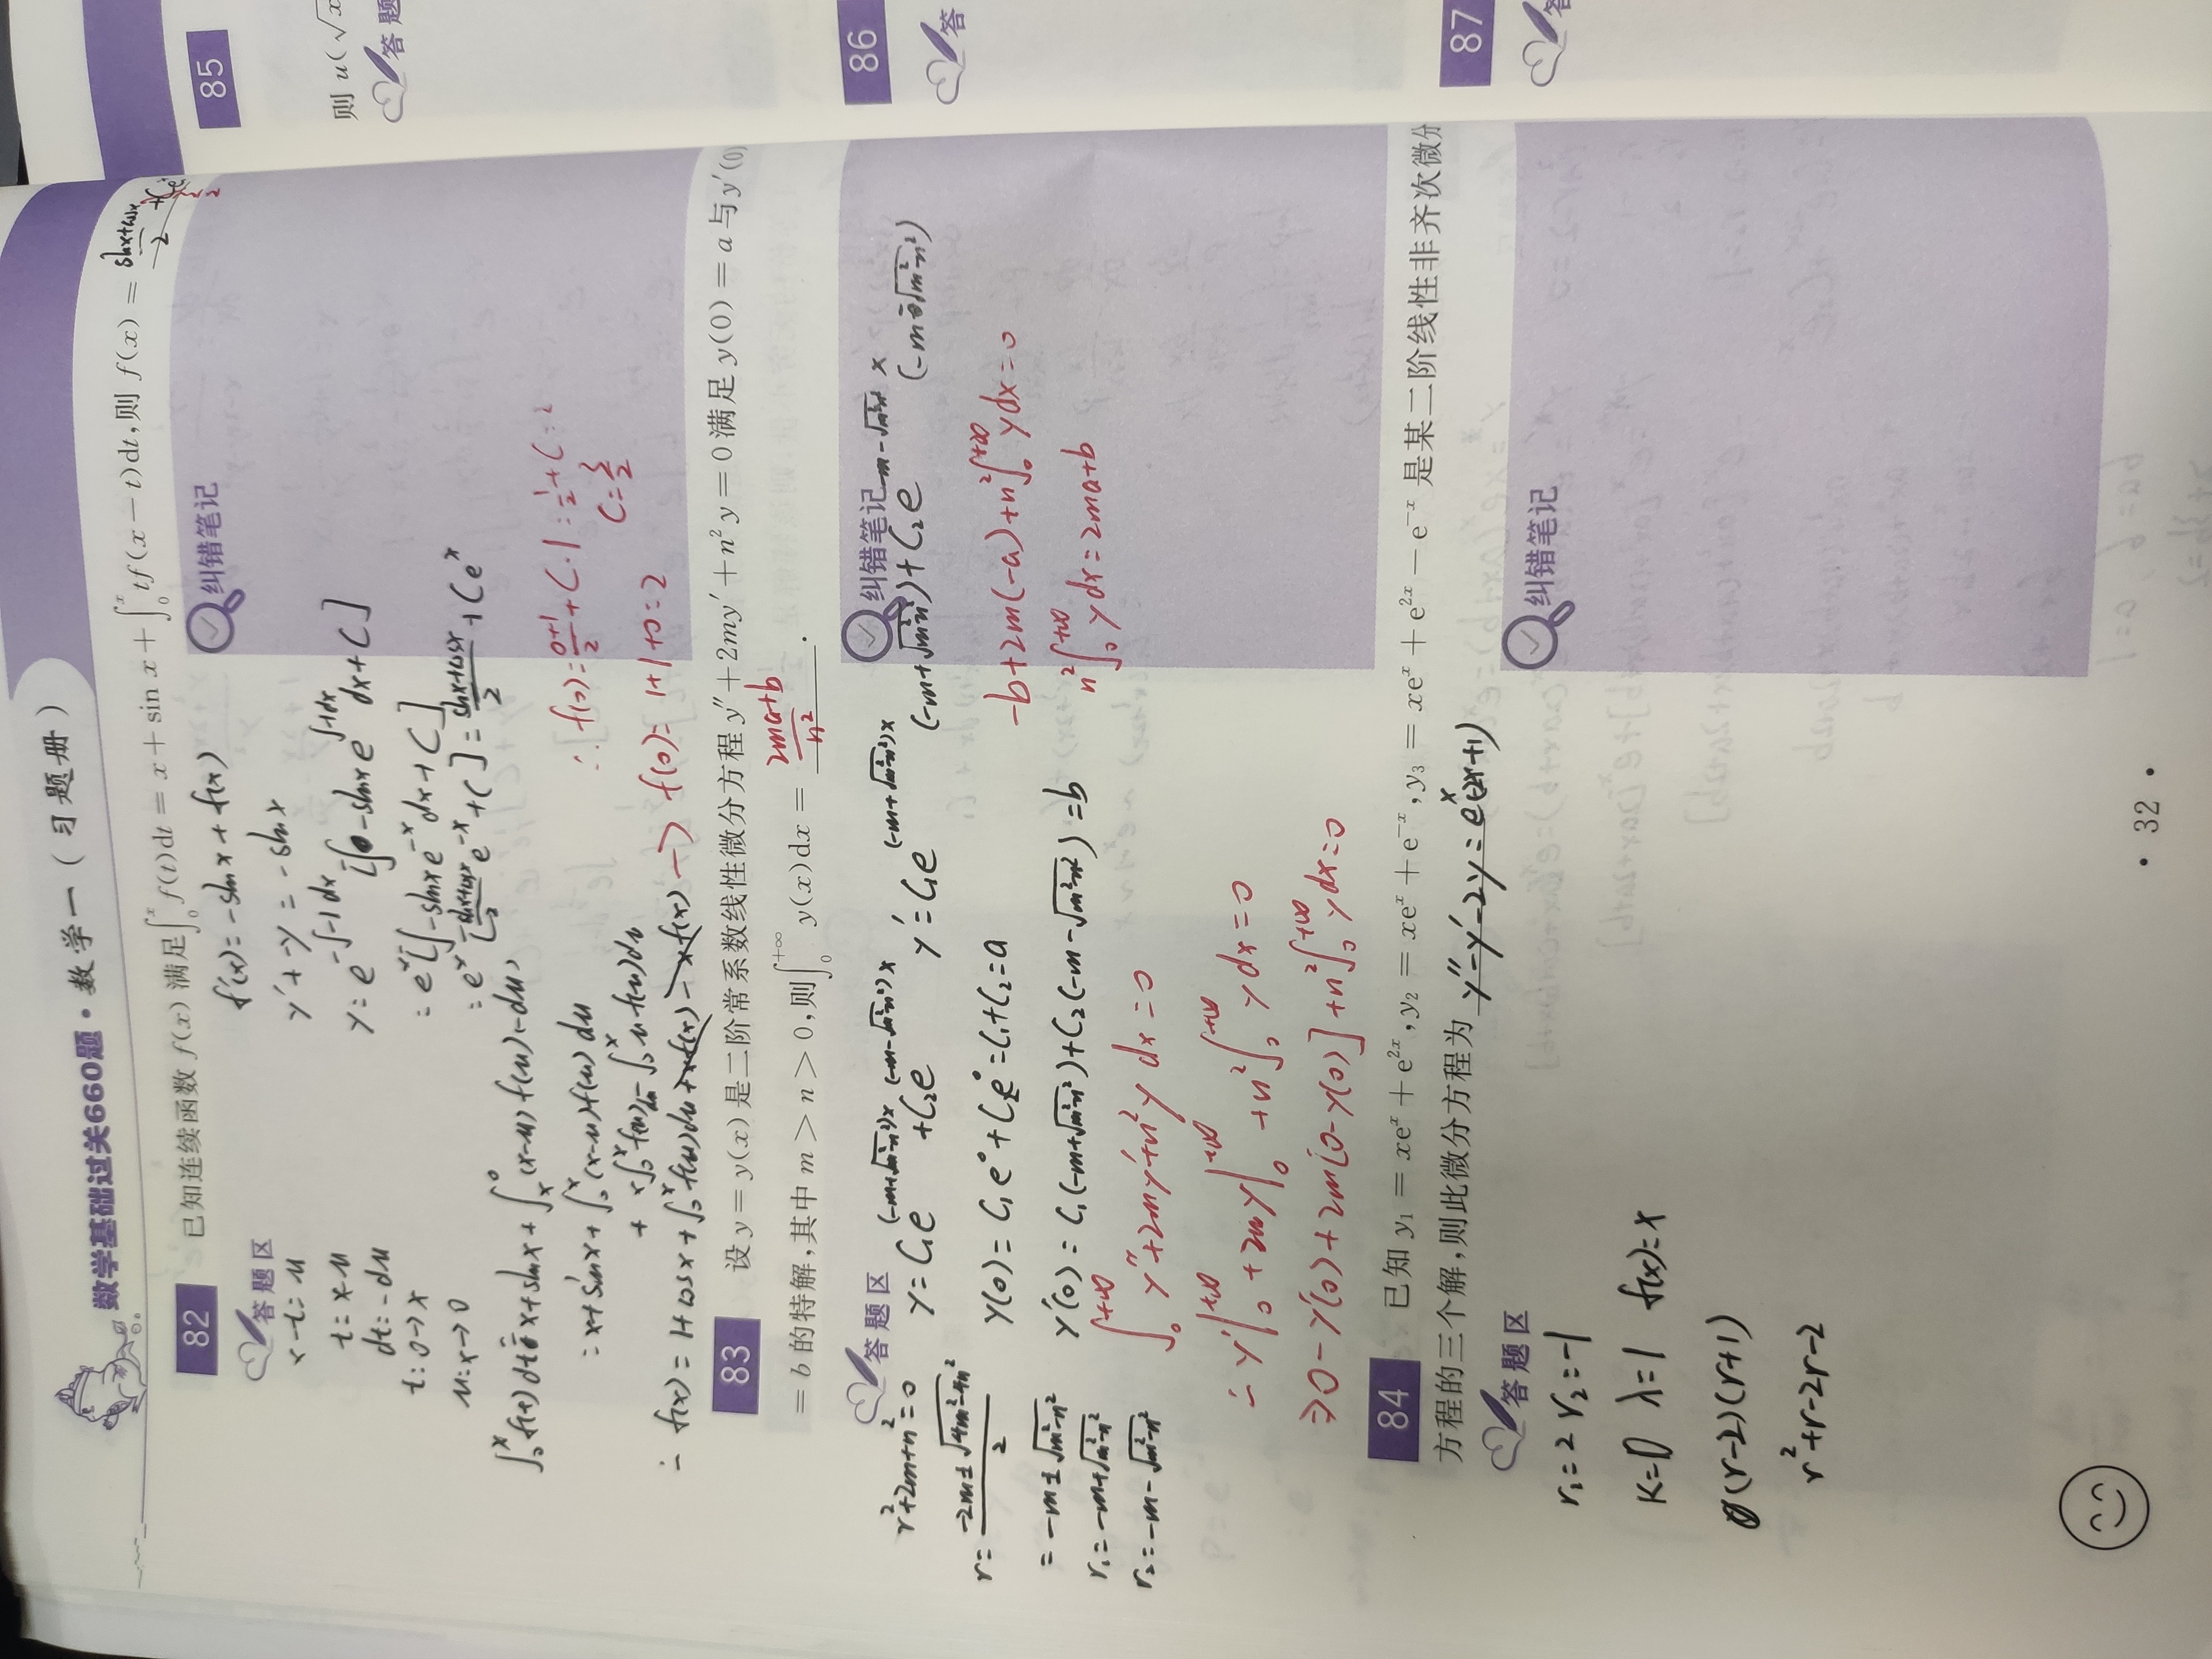 数学基础过关660题·数学一(习题册)
82 已知连续函数 f(x) 满足∫₀ˣ f(t)dt = x + sin x + ∫₀ˣ tf(x − t)dt,则 f(x) = (sinx+cosx)/2
答题区
纠错笔记
x-t=u
t=x-u
dt=-du
t:0→x
u:x→0
f'(x)=-sinx+f(x)
y'+-y=-sinx
y=e^{-∫-1dx}[∫-sinx e^{∫-1dx}dx+C]
=eˣ[∫-sinxe⁻ˣdx+C]
=eˣ[(sinx+cosx)/2 e⁻ˣ+C]=(sinx+cosx)/2+Ceˣ
∫₀ˣf(t)dt=x+sinx+∫ₓ⁰(x-u)f(u)(-du)
=x+sinx+∫₀ˣ(x-u)f(u)du
+x∫₀ˣf(u)du-∫₀ˣuf(u)du
∴f(0)=(0+1)/2+C·1=1/2+C=2
C=3/2
∴f(x)=1+cosx+∫₀ˣf(u)du+xf(x)-xf(x)→f(0)=1+1+0=2
83 设 y = y(x) 是二阶常系数线性微分方程 y″ + 2my′ + n²y = 0 满足 y(0) = a 与 y′(0)
= b 的特解,其中 m > n > 0,则∫₀^{+∞} y(x)dx = (2ma+b)/n² .
答题区
纠错笔记
r²+2m+n²=0
r=(-2m±√(4m²-4n²))/2
=-m±√(m²-n²)
r₁=-m+√(m²-n²)
r₂=-m-√(m²-n²)
y=C₁e^{(-m+√(m²-n²))x}+C₂e^{(-m-√(m²-n²))x}
y'=C₁e^{(-m+√(m²-n²))x}(-m+√(m²-n²))+C₂e^{(-m-√(m²-n²))x}(-m-√(m²-n²))
y(0)=C₁e⁰+C₂e⁰=C₁+C₂=a
y'(0)=C₁(-m+√(m²-n²))+C₂(-m-√(m²-n²))=b
∫₀^{+∞}y″+2my′+n²y dx=0
∴y′|₀^{+∞}+2my|₀^{+∞}+n²∫₀^{+∞}ydx=0
⇒0-y′(0)+2m[0-y(0)]+n²∫₀^{+∞}ydx=0
-b+2m(-a)+n²∫₀^{+∞}ydx=0
n²∫₀^{+∞}ydx=2ma+b
84 已知 y₁ = xeˣ + e²ˣ,y₂ = xeˣ + e⁻ˣ,y₃ = xeˣ + e²ˣ − e⁻ˣ 是某二阶线性非齐次微分
方程的三个解,则此微分方程为 y″-y′-2y=eˣ(-2x+1)
答题区
纠错笔记
r₁=2 r₂=-1
k=0 λ=1 f(x)=x
(r-2)(r+1)
r²+r-2r-2
· 32 ·
85
则 u(√x
答题
86
答
87
答